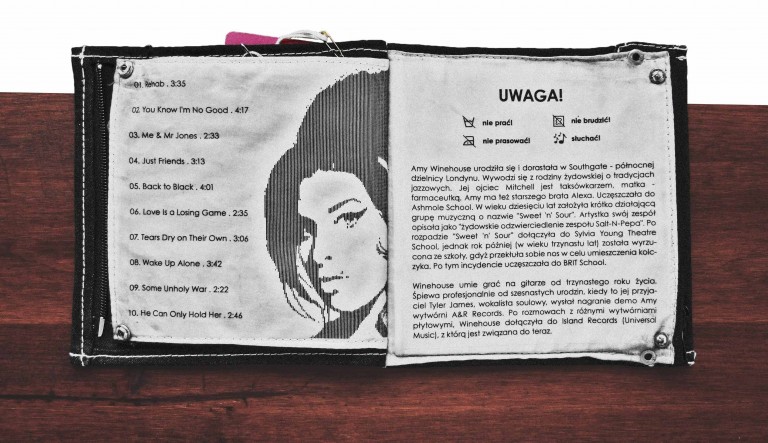 01. Rehab . 3:35
02. You Know I'm No Good . 4:17
03. Me & Mr Jones . 2:33
04. Just Friends . 3:13
05. Back to Black . 4:01
06. Love Is a Losing Game . 2:35
07. Tears Dry on Their Own . 3:06
08. Wake Up Alone . 3:42
09. Some Unholy War . 2:22
10. He Can Only Hold Her . 2:46
UWAGA!
nie prać! nie brudzić!
nie prasować! słuchać!
Amy Winehouse urodziła się i dorastała w Southgate - północnej
dzielnicy Londynu. Wywodzi się z rodziny żydowskiej o tradycjach
jazzowych. Jej ojciec Mitchell jest taksówkarzem, matka -
farmaceutką. Amy ma też starszego brata Alexa. Uczęszczała do
Ashmole School. W wieku dziesięciu lat założyła krótko działającą
grupę muzyczną o nazwie "Sweet 'n' Sour". Artystka swój zespół
opisała jako "żydowskie odzwierciedlenie zespołu Salt-N-Pepa". Po
rozpadzie "Sweet 'n' Sour" dołączyła do Sylvia Young Theatre
School, jednak rok później (w wieku trzynastu lat) została wyrzu-
cona ze szkoły, gdyż przekłuła sobie nos w celu umieszczenia kolc-
zyka. Po tym incydencie uczęszczała do BRIT School.
Winehouse umie grać na gitarze od trzynastego roku życia.
Śpiewa profesjonalnie od szesnastych urodzin, kiedy to jej przyja-
ciel Tyler James, wokalista soulowy, wysłał nagranie demo Amy
wytwórni A&R Records. Po rozmowach z różnymi wytwórniami
płytowymi, Winehouse dołączyła do Island Records (Universal
Music), z którą jest związana do teraz.